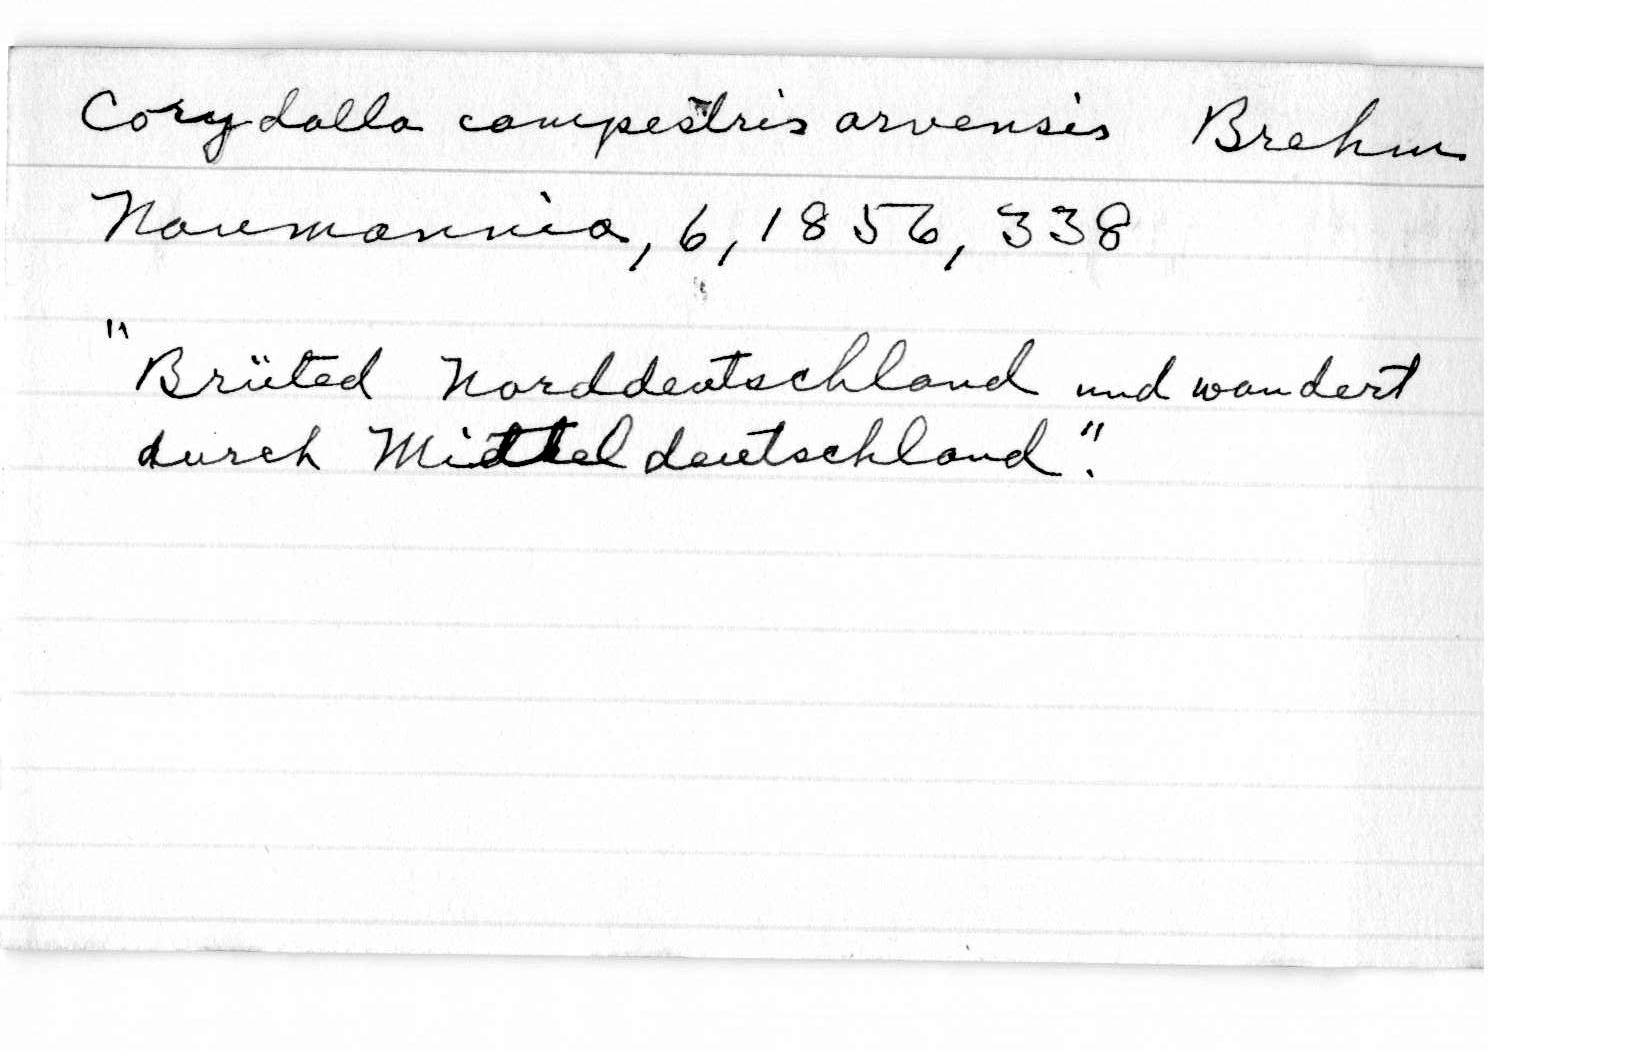 Corydalla campestris arvensis Brehm
Naumannia, 6, 1856, 338
"Brüted Norddeutschland und wandert
durch Mitteldeutschland".